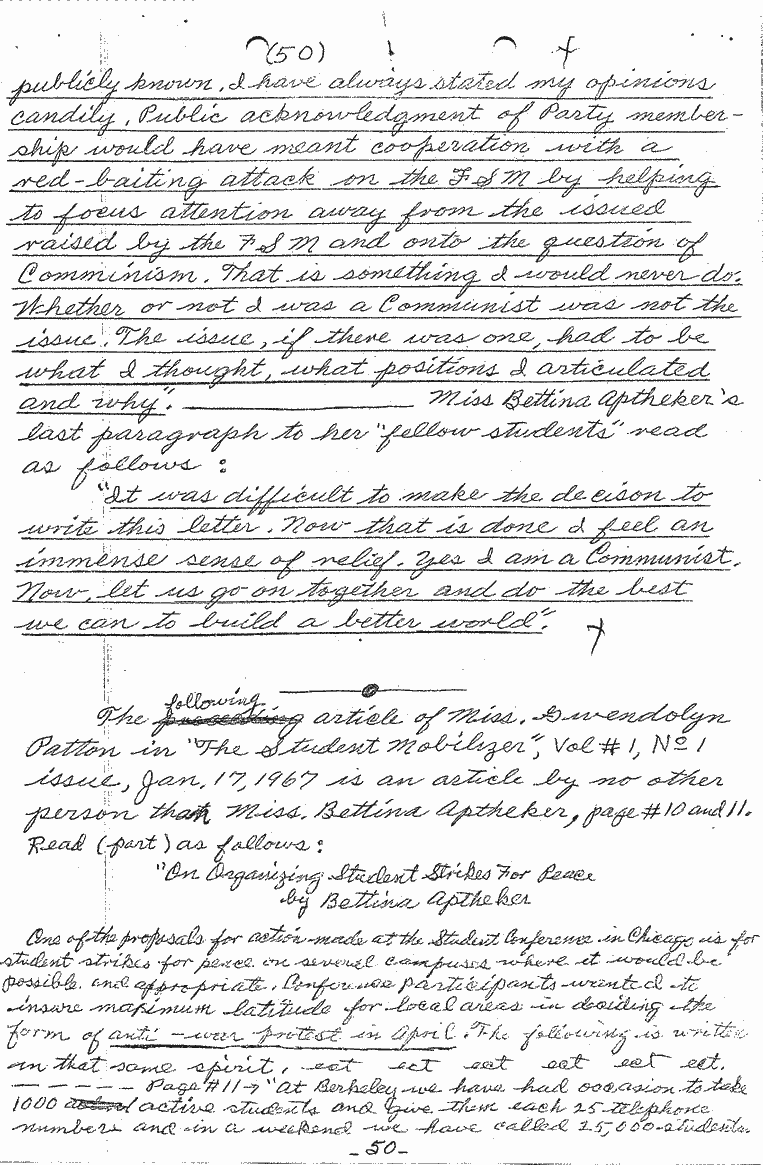 (50)
publicly known. I have always stated my opinions
candily. Public acknowledgment of Party member-
ship would have meant cooperation with a
red-baiting attack on the FSM by helping
to focus attention away from the issued
raised by the FSM and onto the question of
Comminism. That is something I would never do.
Whether or not I was a Communist was not the
issue. The issue, if there was one, had to be
what I thought, what positions I articulated
and why". Miss Bettina Aptheker's
last paragraph to her "fellow students" read
as follows :
"It was difficult to make the decison to
write this letter. Now that is done I feel an
immense sense of relief. Yes I am a Communist.
Now, let us go on together and do the best
we can to build a better world".
following
The article of Miss. Gwendolyn
Patton in "The Student Mobilizer", Vol # 1, No 1
issue, Jan. 17, 1967 is an article by no other
person than Miss. Bettina Aptheker, page # 10 and 11.
Read (part) as follows :
"On Organizing Student Strikes For Peace
by Bettina Aptheker
One of the proposals for action made at the Student Conference in Chicago is for
student strikes for peace on several campuses where it would be
possible and appropriate. Conference participants wanted to
insure maximum latitude for local areas in deciding the
form of anti-war protest in April. The following is written
in that same spirit, ect ect ect ect ect ect.
----- Page # 11 → "At Berkeley we have had occasion to take
1000 active students and give them each 25 telephone
numbers and in a weekend we have called 25,000 students.
-50-